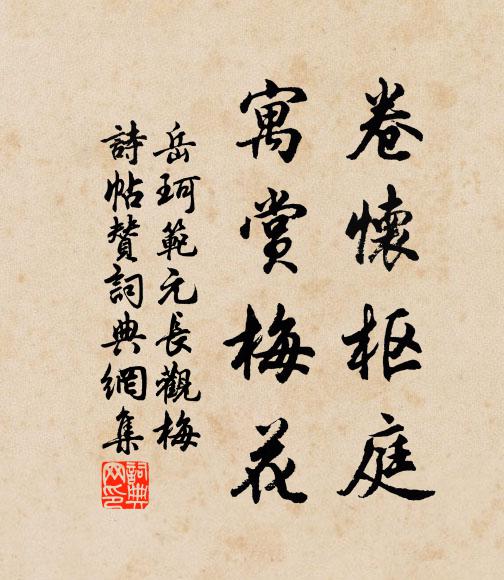 卷懷枢庭
寓赏梅花
岳珂範元長觀梅
詩帖贊詞典網集
詞典网印